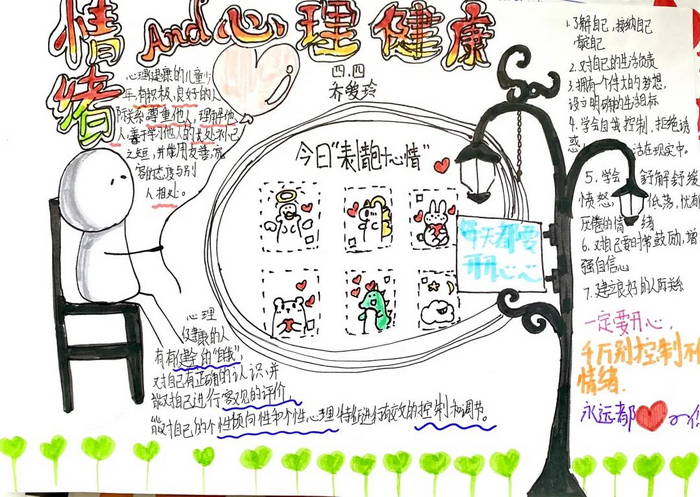 情绪 And 心理健康
四.四
心理健康的儿童少
年,有积极,良好的人
际关系.尊重他人,理解他
人,善于学习他人的长处补己
之短,并能用友善,宽
容的态度与别
人相处。
今日“表情包+心情”
每天都要
开开心心
心理
健康的人
有有健全的“自我”
对自己有正确的认识,并
能对自己进行客观的评价
能对自己的个性倾向性和个性心理特征进行有效的控制和调节。
1.了解自己,接纳自己
2.对自己的生活负责
3.拥有个伟大的梦想,
设立明确的生活目标
4.学会自我控制,拒绝诱
惑 活在现实中。
5.学会 舒解舒缓
愤怒 低落,忧郁
厌倦的情绪
6.对自己要时常鼓励,增
强自信心
7.建立良好的人际关系
一定要开心,
千万别控制不
情绪.
永远都